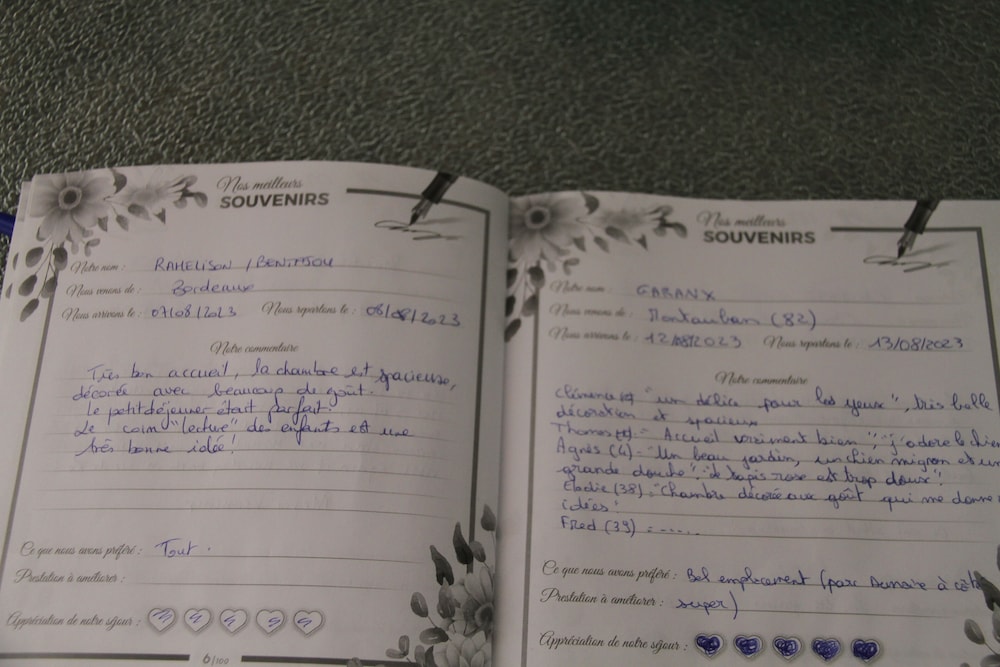 Nos meilleurs
SOUVENIRS
Notre nom : RAMELISON / BENITJOU
Nous venons de : Bordeaux
Nous arrivons le : 07/08/2023 Nous repartons le : 08/08/2023
Notre commentaire
Très bon accueil, la chambre est spacieuse,
décorée avec beaucoup de goût.
Le petit déjeuner était parfait.
Le coin "lecture" des enfants est une
très bonne idée !
Ce que nous avons préféré : Tout.
Prestation à améliorer :
Appréciation de notre séjour :
6/100
Nos meilleurs
SOUVENIRS
Notre nom : GARANX
Nous venons de : Montauban (82)
Nous arrivons le : 12/08/2023 Nous repartons le : 13/08/2023
Notre commentaire
Clémence "un délice pour les yeux", très belle
décoration et spacieux
Thomas : "Accueil vraiment bien", "j'adore le chien
Agnès (4) : "Un beau jardin, un chien mignon et un
grande douche" "le tapis rose est trop doux"!
Elodie (38) : "Chambre décorée aux goût qui me donne
idées!
Fred (39) : ......
Ce que nous avons préféré : Bel emplacement (parc à côté
Prestation à améliorer : super)
Appréciation de notre séjour :